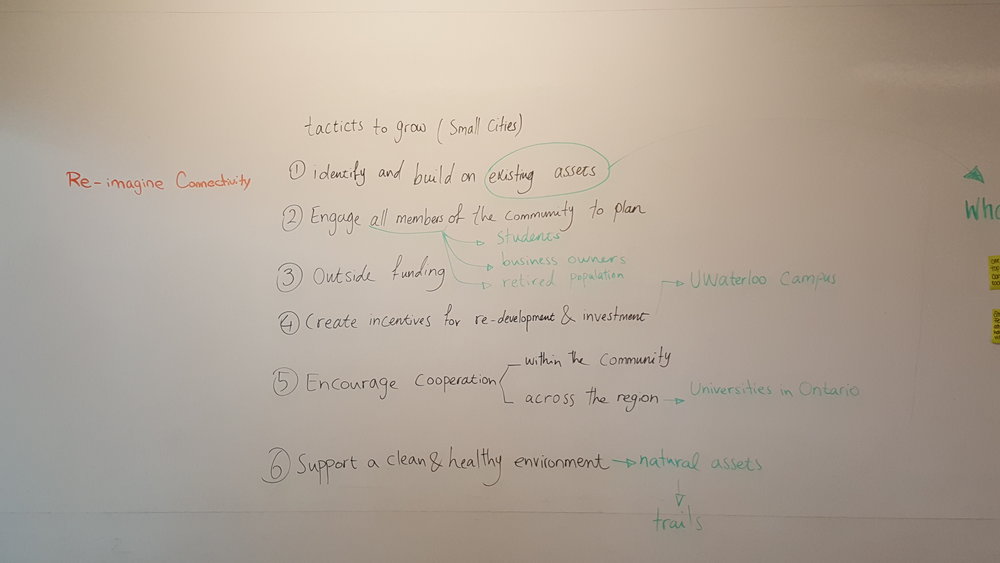 tacticts to grow (Small Cities)
Re-imagine Connectivity
① identify and build on existing assets
② Engage all members of the community to plan
Students
business owners
retired population
③ Outside funding
UWaterloo Campus
④ Create incentives for re-development & investment
⑤ Encourage Cooperation
within the Community
across the region
Universities in Ontario
⑥ Support a clean & healthy environment → natural assets
trails